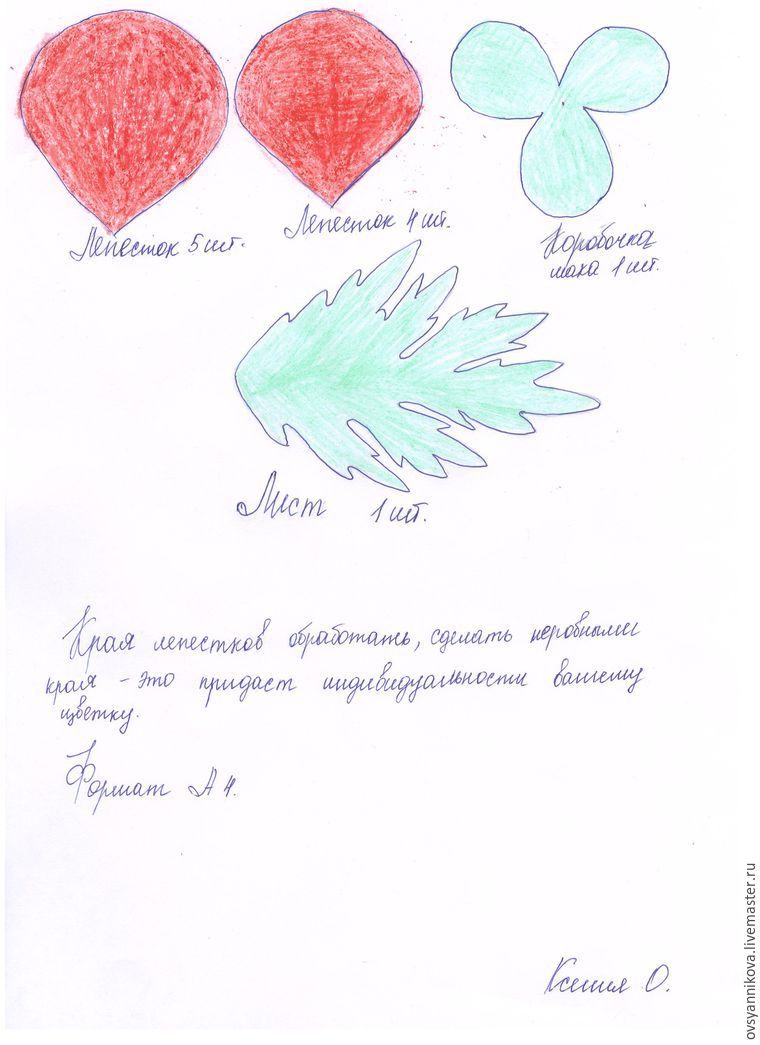 Лепесток 5 шт.
Лепесток 4 шт.
Коробочка
мака 1 шт.
Лист 1 шт.
Края лепестков обработать, сделать неровными
края - это придаст индивидуальности вашему
цветку.
Формат А4.
Ксения О.
ovsyannikova.livemaster.ru